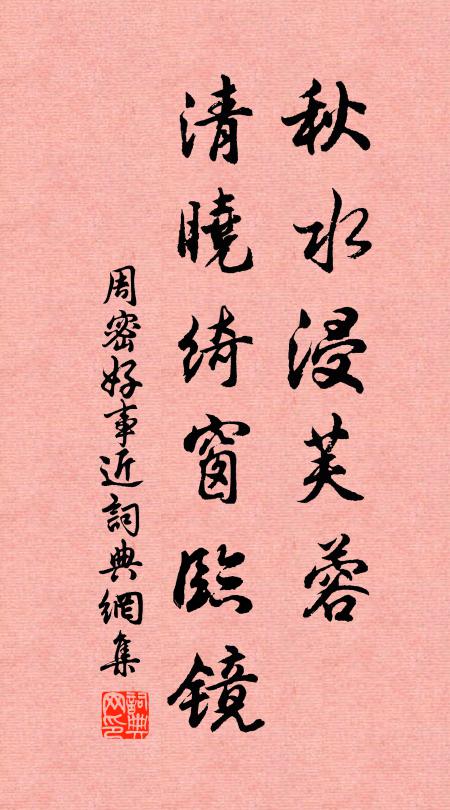 秋水浸芙蓉
清曉綺窗臨鏡
周密好事近詞典網集
詞典网印